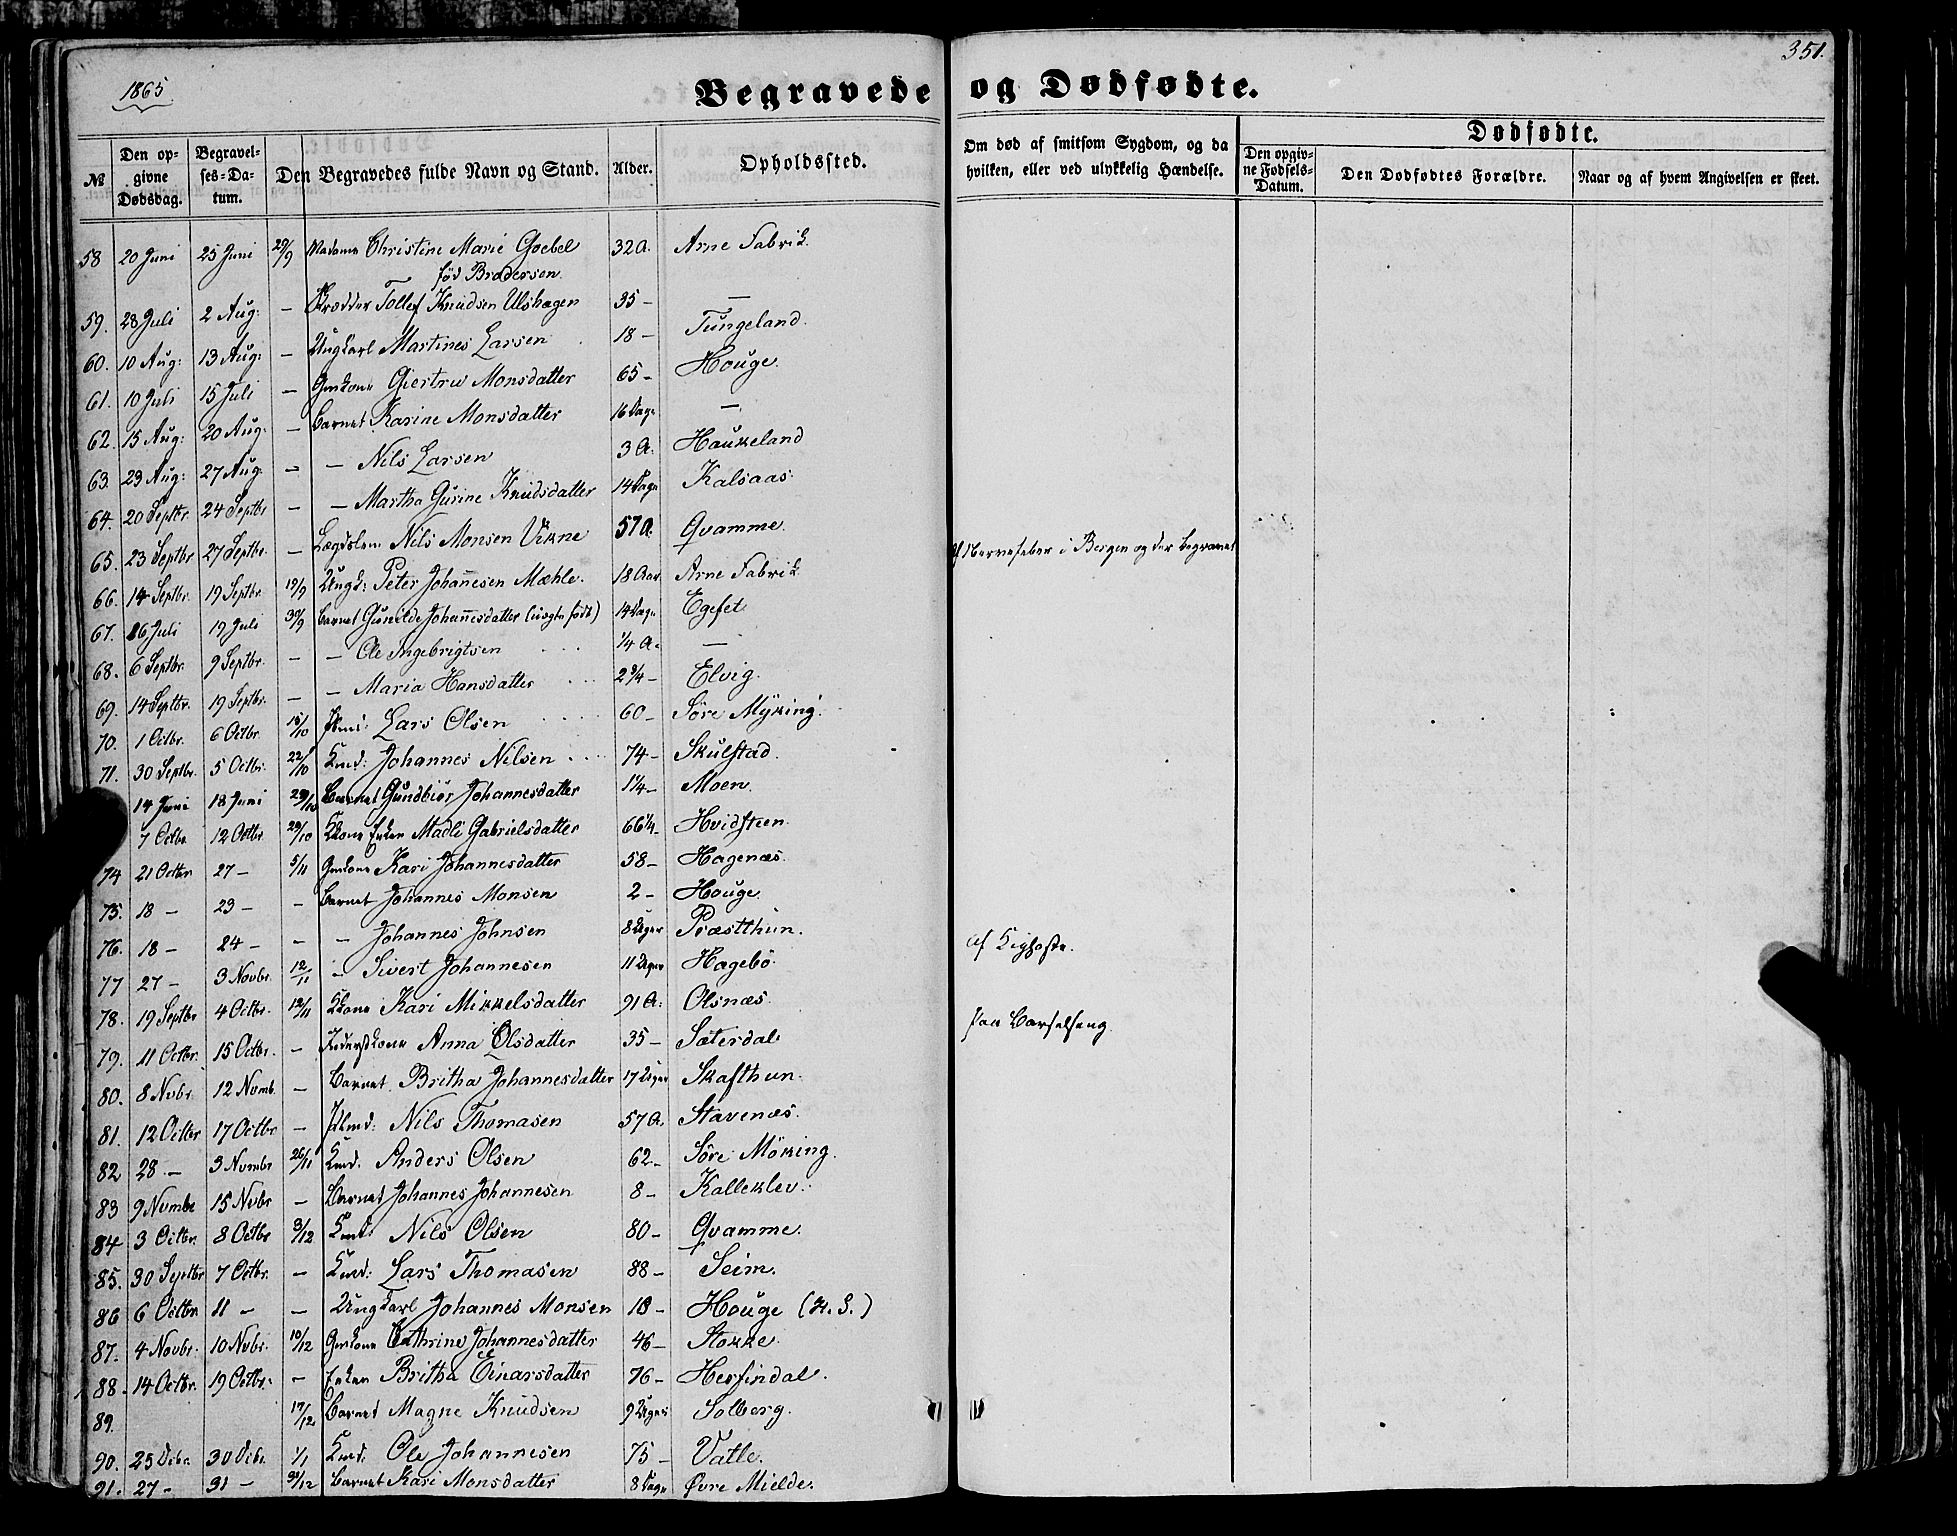 1865
351.
Begravede og Dødfødte.
№
Den opgivne Dødsdag.
Begravelses-Datum.
Den Begravedes fulde Navn og Stand.
Alder.
Opholdssted.
Om død af smitsom Sygdom, og da hvilken, eller ved ulykkelig Hændelse.
Dødfødte.
Den opgivne Fødsels-Datum.
Den Dødfødtes Forældre.
Naar og af hvem Angivelsen er skeet.
58 20 Juni 25 Juni 29/9 Madame Christine Marie Goebel 32 A. Arne Fabrik
fød Brodersen
59. 28 Juli 2 Aug: — Skrædder Tollef Knudsen Ulshagen 35 — —
60. 10 Aug: 13 Aug: — Ungkarl Martines Larsen 18 — Tungeland.
61. 10 Juli 15 Juli — Gmkone Giertru Monsdatter 65 — Houge.
62. 15 Aug: 20 Aug: — Barnet Karine Monsdatter 16 Dage —
63. 23 Aug: 27 Aug: — — Nils Larsen 3 A. Haukeland
64. 20 Septbr. 24 Septbr — — Martha Gurine Knudsdatter 14 Dage Kalsaas.
65. 23 Septbr 27 Septbr. — Lægdslem Nils Monsen Vikne 57 A. Qvamme.
66. 14 Septbr. 19 Septbr. 19/9 Ungk: Peter Johannesen Mæhle. 18 Aar Arne Fabrik af Nervefeber i Bergen og der begravet
67. 16 Juli 19 Juli 30/9 Barnet Gunilde Johannesdatter (uægte født) 14 Dage Egefet.
68. 6 Septbr. 9 Septbr. — — Ole Ingebrigtsen 1/4 A. —
69. 14 Septbr. 19 Septbr. — — Maria Hansdatter 2 3/4 — Elvig.
70. 1 Octbr. 6 Octbr. 15/10 Lars Olsen 60 — Søre Myking.
71. 30 Septbr. 5 Octbr. 22/10 Kmd: Johannes Nilsen 74 — Skulstad.
14 Juni 18 Juni 29/10 Barnet Gundbiør Johannesdatter 1 1/4 — Moen.
7 Octbr. 12 Octbr. 29/10 Kkone Enken Madli Gabrielsdatter 66 1/4 — Hvidsteen.
74 21 Octbr 27 — 5/11 Gmkone Kari Johannesdatter 58 — Hagenæs.
75. 18 — 23 — — Barnet Johannes Monsen 2 — Houge.
76. 18 — 24 — — — Johannes Johnsen 8 Uger Præstthun. af Kighoste.
77 27 — 3 Novbr. 12/11 — Sivert Johannesen 11 Uger Hagebø
78. 19 Septbr 4 Octbr. 12/11 Kkone Kari Mikkelsdatter 91 A. Olsnæs.
79. 11 Octbr. 15 Octbr. — Inderstkone Anna Olsdatter 35 — Sæterdal paa Barselseng.
80. 8 Nvbr. 12 Nvmb. — Barnet Britha Johannesdatter 17 Uger Skafthun.
81. 12 Octbr 17 Octbr. — Nils Thomasen 57 A. Stavenæs.
82 28 — 3 Nvmbr 26/11 Kmd. Anders Olsen 62 — Søre Møking.
83 9 Nvmbr 15 Nvbr — Barnet Johannes Johannesen 8 — Kalleklev.
84 3 Octbr. 8 Octbr 3/12 Kmd: Nils Olsen 80 — Qvamme.
85. 30 Septbr 7 Octbr. — Kmd: Lars Thomasen 88 — Seim.
86 6 Octbr. 11 — — Ungkarl Johannes Monsen 18 — Houge (H. S.)
87. 4 Novbr. 10 Nvbr. 10/12 Gmkone Cathrine Johannesdatter 46 — Stokke.
88. 14 Octbr. 19 Octbr. — Enken Britha Einarsdatter 76 — Herfindal.
89. 17/12 Barnet Magne Knudsen 9 Uger Solberg.
90. 25 Debr. 30 Debr. 1/1 Kmd. Ole Johannesen 75 — Vatle.
91. 27 — 31 — 31/12 Barnet Kari Monsdatter 8 Dage Øvre Mielde.